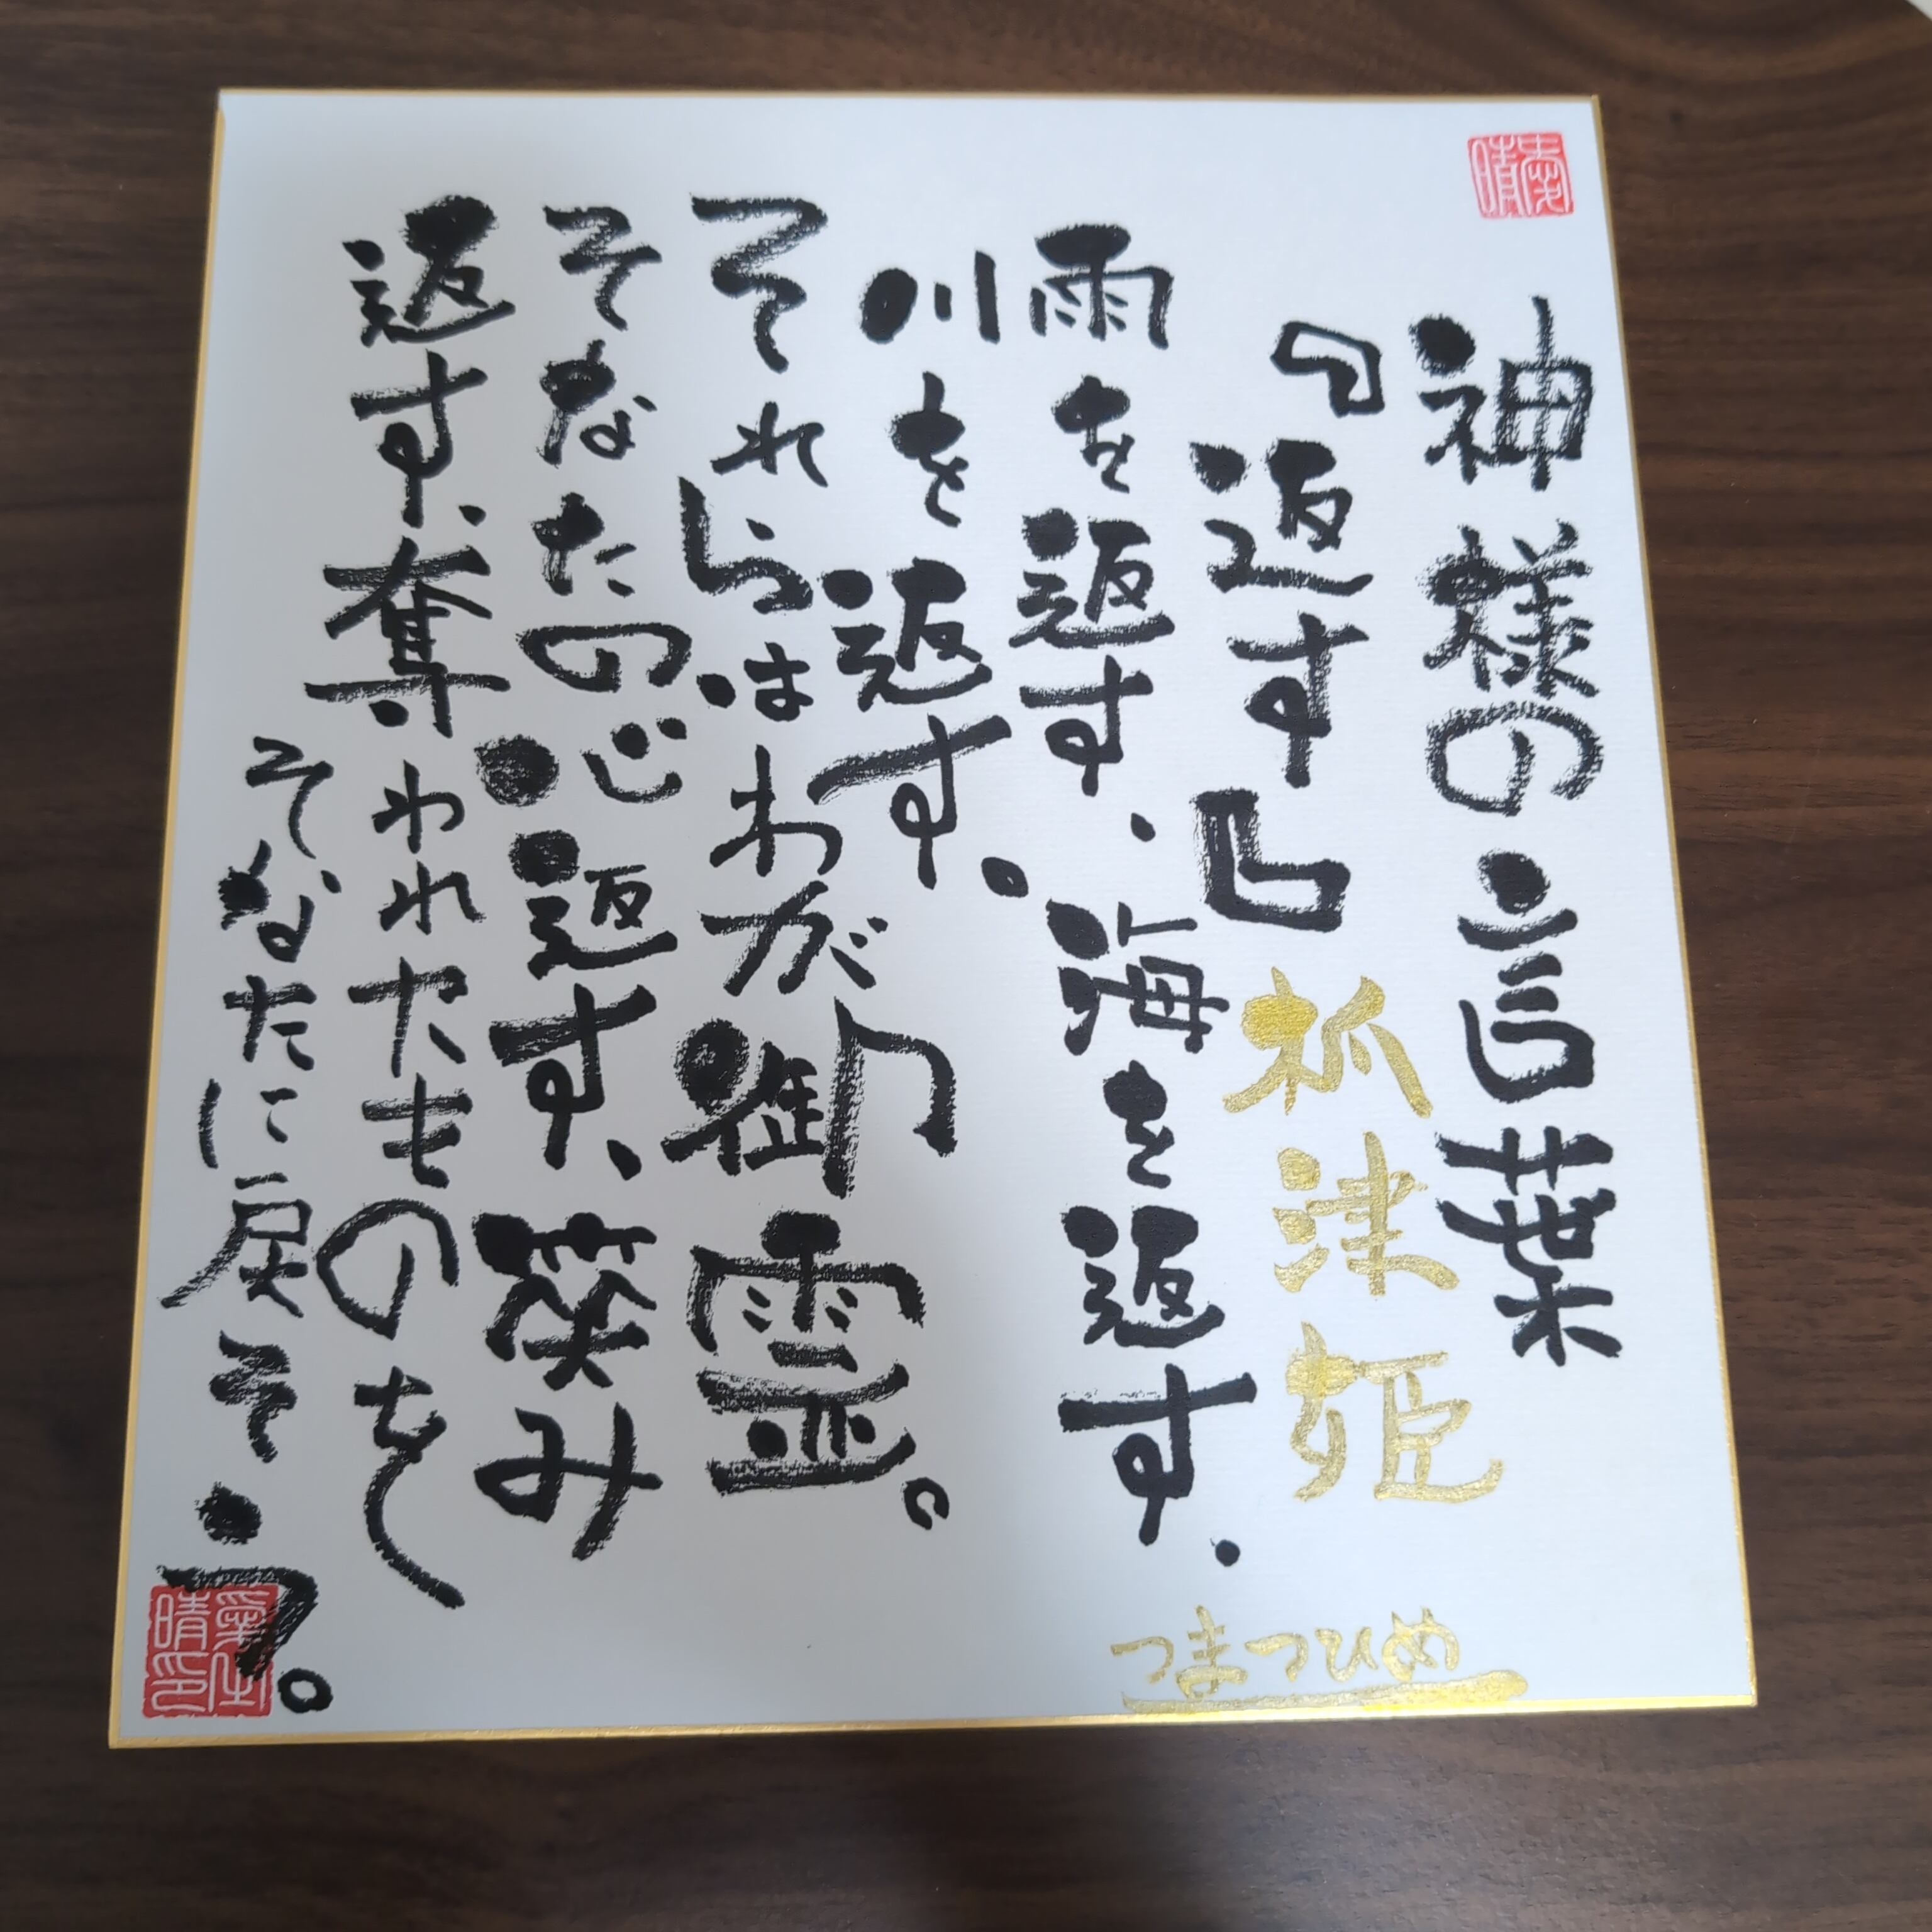 神様の言葉
『返す』
抓津姫
つまつひめ
雨を返す.海を返す.
川を返す.
それらはわが御霊。
そなたの心返す、笑み
返す、奪われたものを
そなたに戻そう。